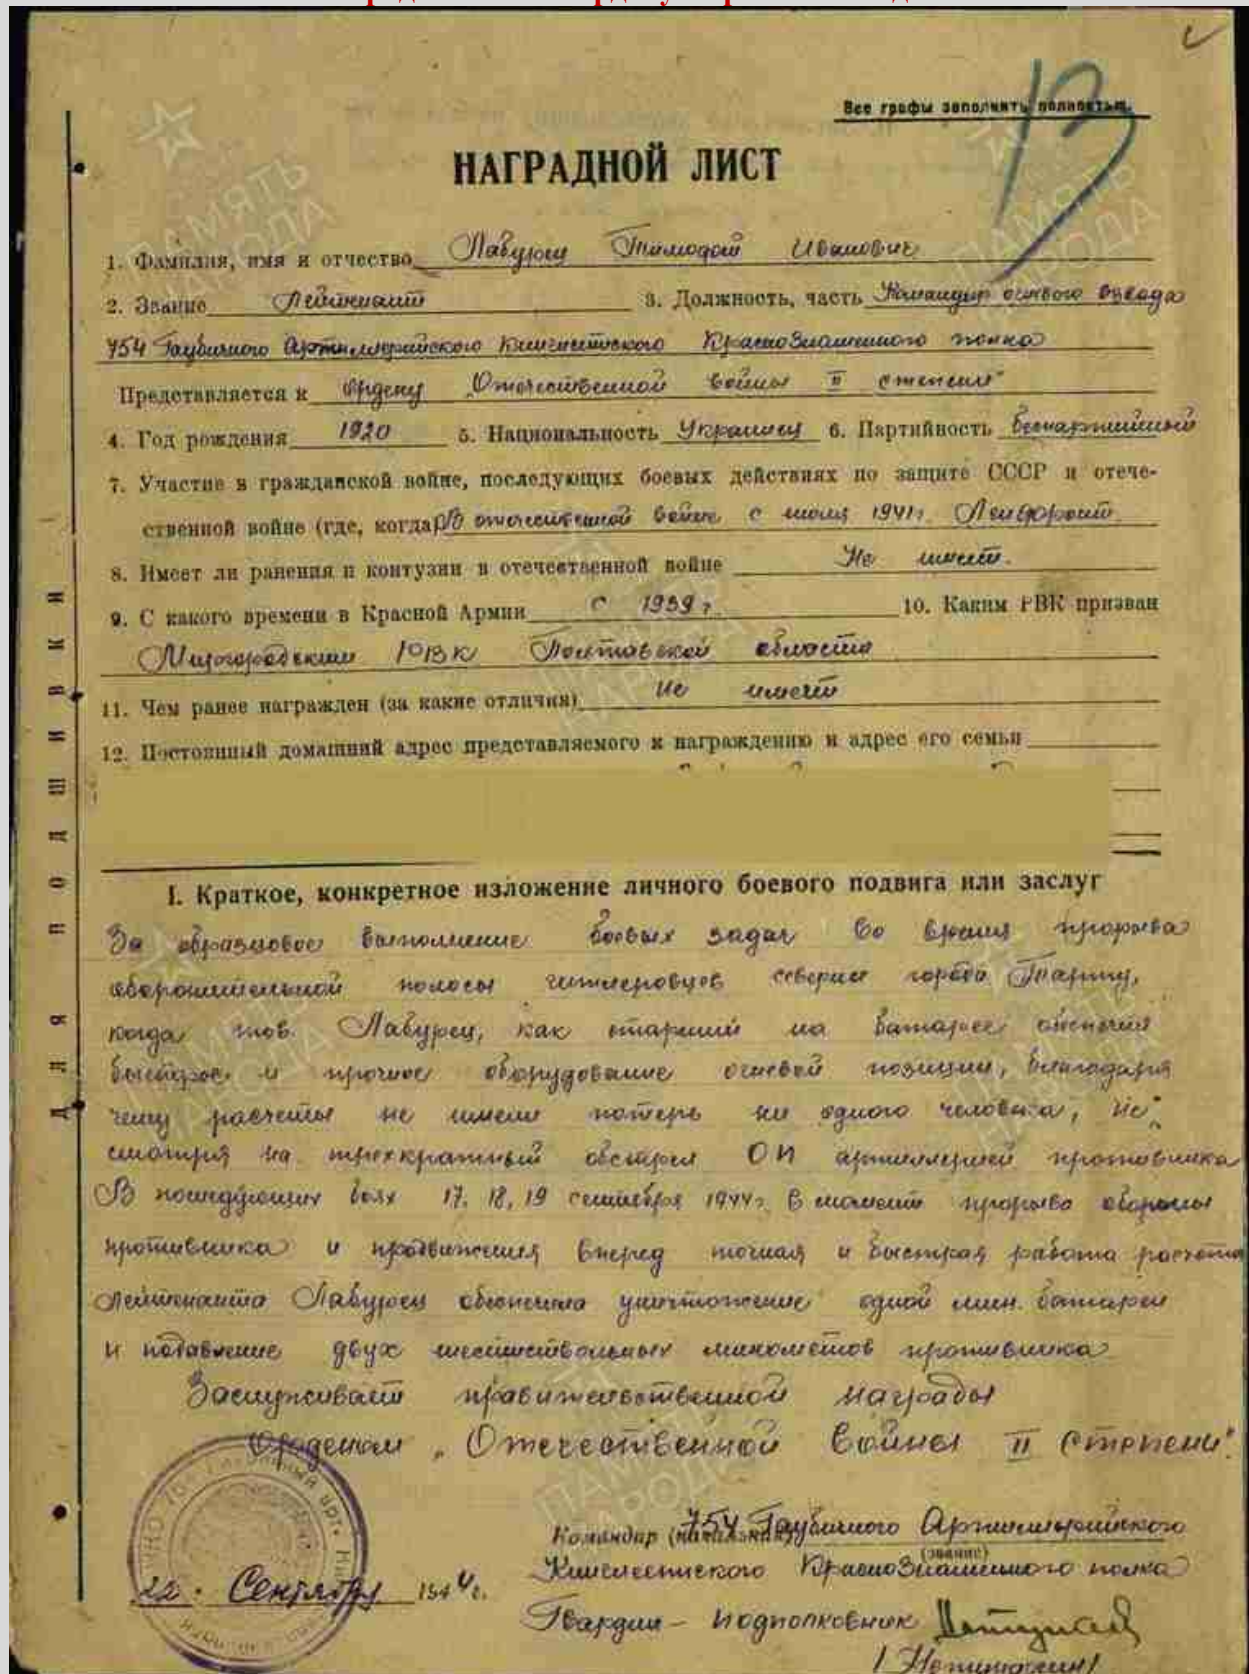 Все графы заполнить полностью.
13
НАГРАДНОЙ ЛИСТ
1. Фамилия, имя и отчество Лабурец Тимофей Иванович
2. Звание Лейтенант 3. Должность, часть Командир огневого взвода
754 Гаубичного Артиллерийского Кингисеппского КрасноЗнаменного полка
Представляется к ордену „Отечественной войны II степени"
4. Год рождения 1920 5. Национальность Украинец 6. Партийность беспартийный
7. Участие в гражданской войне, последующих боевых действиях по защите СССР и отече-
ственной войне (где, когда) В отечественной войне с июля 1941г. Ленфронт.
8. Имеет ли ранения и контузии в отечественной войне Не имеет.
9. С какого времени в Красной Армии с 1939 г. 10. Каким РВК призван
Миргородским РВК Полтавской области
11. Чем ранее награжден (за какие отличия) Не имеет
12. Постоянный домашний адрес представляемого к награждению и адрес его семьи
ДЛЯ ПОДШИВКИ
I. Краткое, конкретное изложение личного боевого подвига или заслуг
За образцовое выполнение боевых задач во время прорыва
оборонительной полосы гитлеровцев севернее города Тарту,
когда тов. Лабурец, как старший на батарее обеспечил
быстрое и прочное оборудование огневой позиции, благодаря
чему расчеты не имели потерь ни одного человека, не
смотря на трехкратный обстрел ОП артиллерией противника
В последующих боях 17, 18, 19 сентября 1944г. в момент прорыва обороны
противника и продвижения вперед точная и быстрая работа расчета
лейтенанта Лабурец обеспечила уничтожение одной мин. батареи
и подавление двух шестиствольных минометов противника
Заслуживает правительственной награды
Орденом „Отечественной войны II степени".
Командир (начальник) 754 Гаубичного Артиллерийского
(звание)
Кингисеппского КрасноЗнаменного полка
22. Сентября 1944г.
Гвардии - подполковник